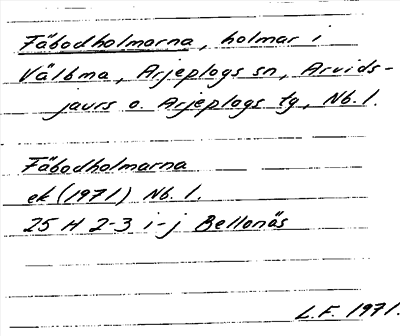 Fäbodholmarna, holmar i
Välbma, Arjeplogs sn, Arvids-
jaurs o. Arjeplogs tg, Nb. l.
Fäbodholmarna
ek (1971) Nb. l.
25 H 2-3 i-j Bellonäs
L.F. 1971.